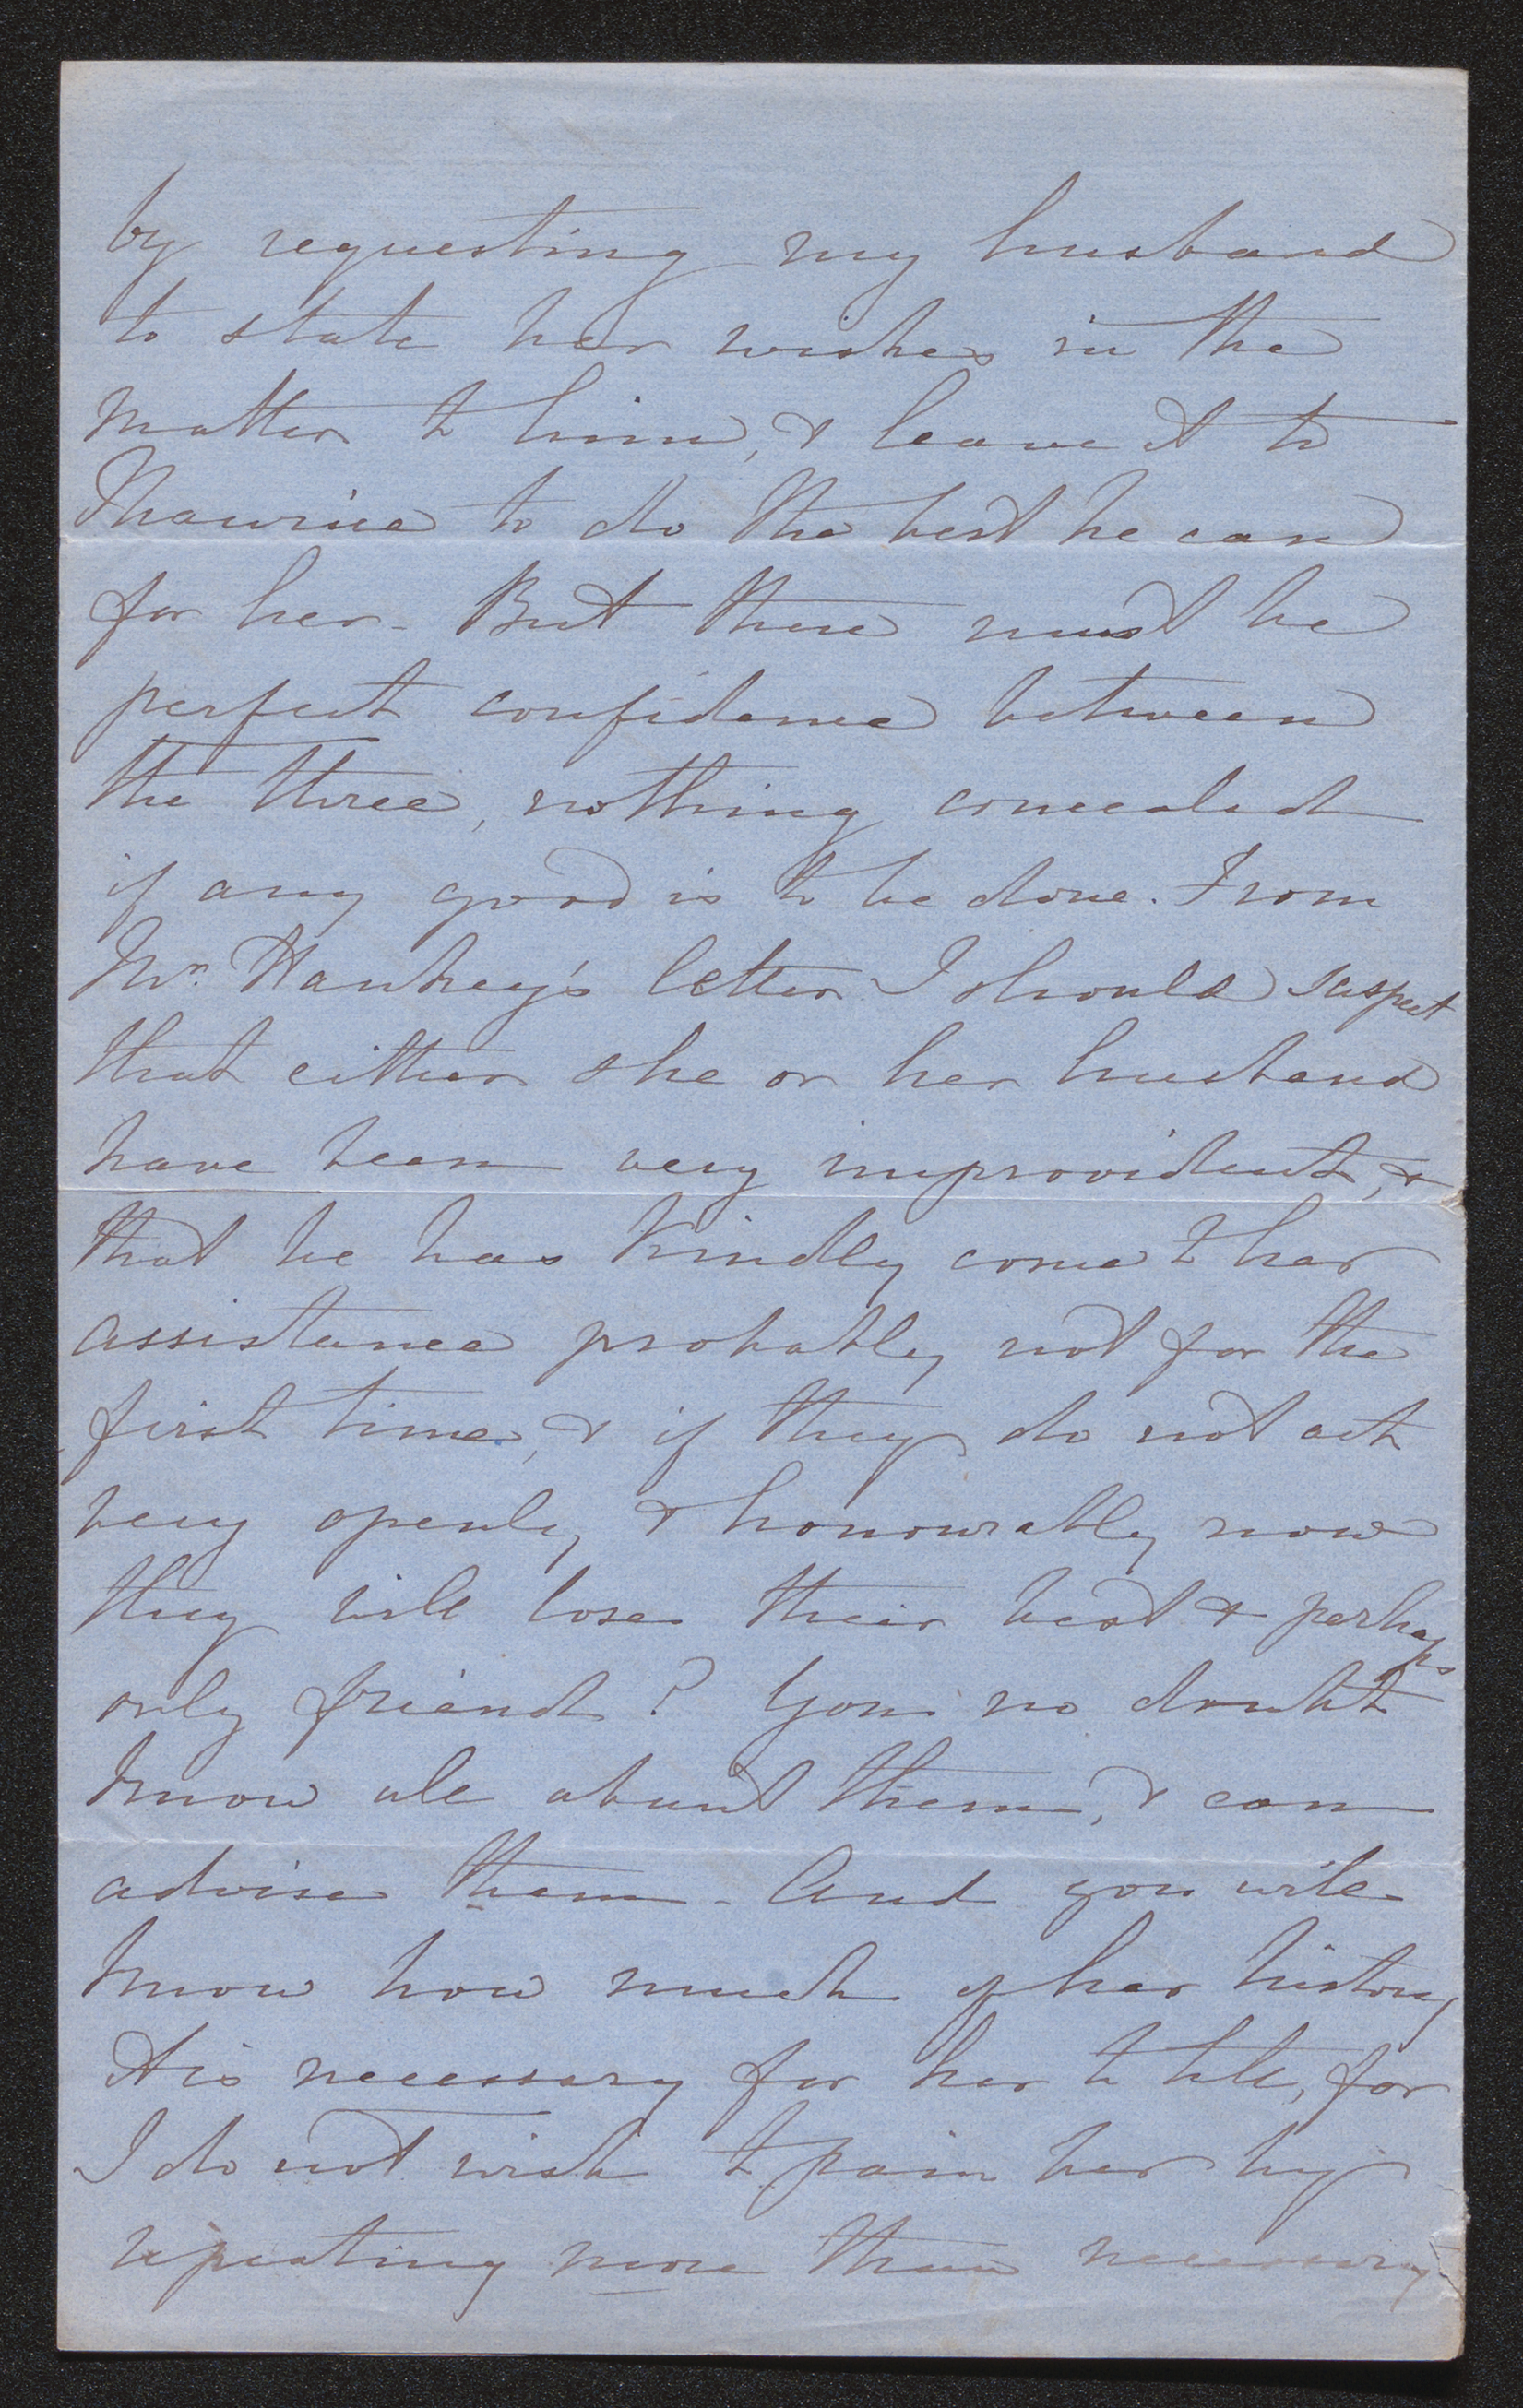 by requesting my husband
to state her wishes in the
matter to him, & leave it to
Maurice to do the best he can
for her - But there must be
perfect confidence between
the three, nothing concealed
if any good is to be done. From
Mr. Hawkey's letter I should suspect
that either she or her husband
have been very improvident, &
that he has kindly come to her
assistance probably not for the
first time, & if they do not act
very openly & honourably now
they will lose their best & perhaps
only friend? You no doubt
know all about them, & can
advise them - And you will
know how much of her history
it is necessary for her to tell, for
I do not wish to pain her by
repeating more than necessary